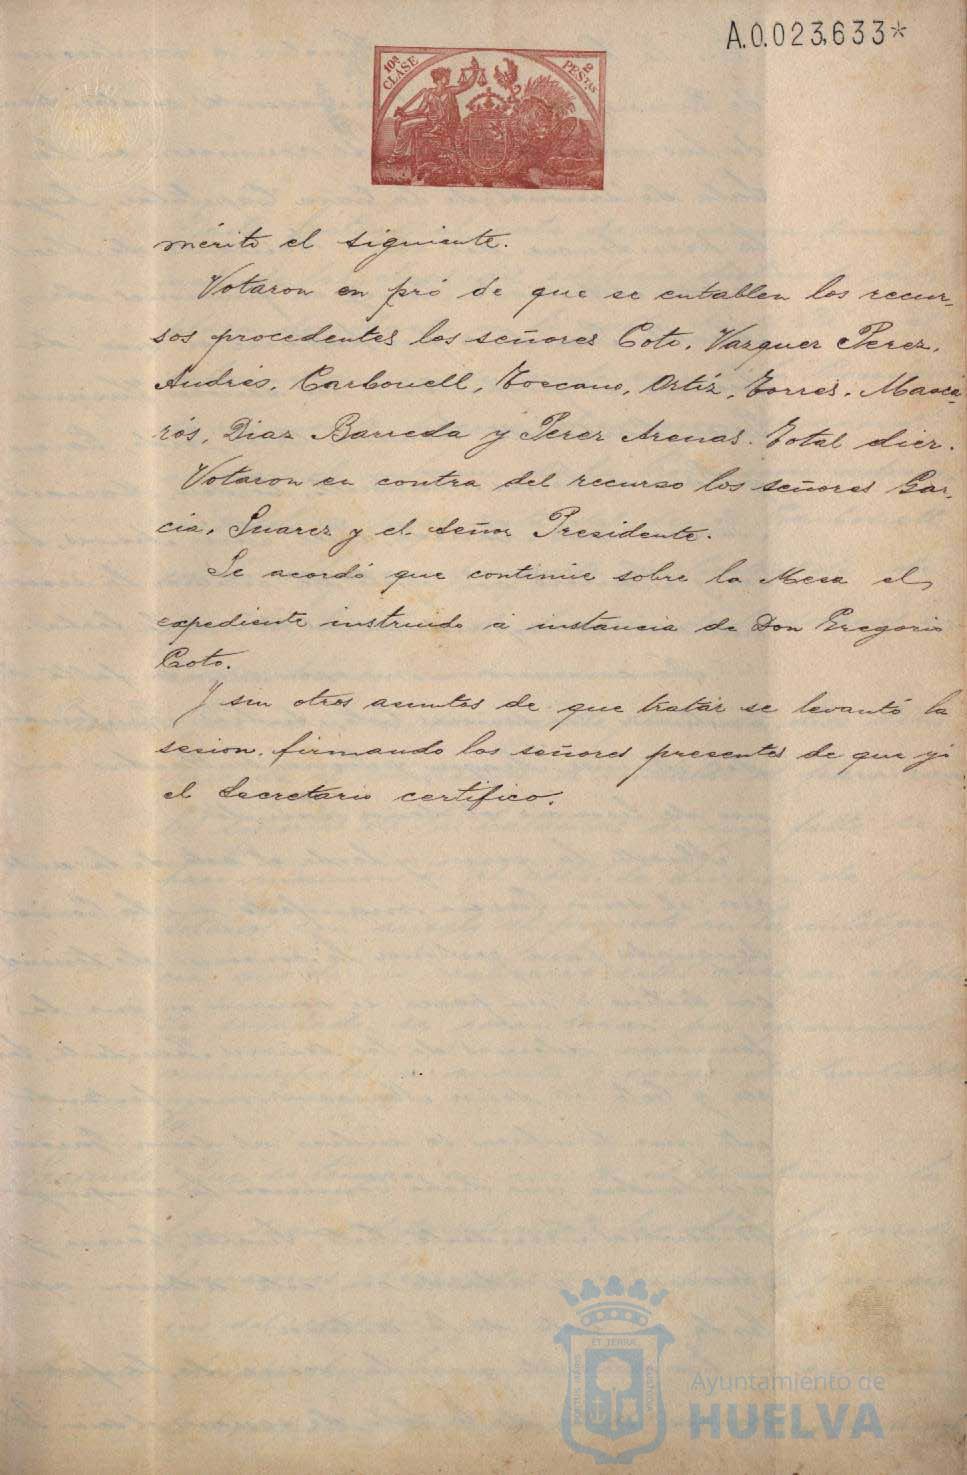 A.0.023,633*
10ª CLASE
2 PESTAS
mérito el siguiente.
Votaron en pró de que se entablen los recur-
sos procedentes los señores Coto, Vazquez Perez,
Andrés, Carbonell, Toscano, Ortíz, Torres, Masca-
rós, Diaz Barreda y Perez Arenas. Total diez.
Votaron en contra del recurso los señores Gar-
cia, Suarez y el Señor Presidente.
Se acordó que continúe sobre la Mesa el
expediente instruido á instancia de Don Gregorio
Coto.
Y sin otros asuntos de que tratar se levantó la
sesion, firmando los señores presentes de que yó
el Secretario certifico.
ET TERRAE
PORTUS MARIS
CUSTODIA
Ayuntamiento de
HUELVA